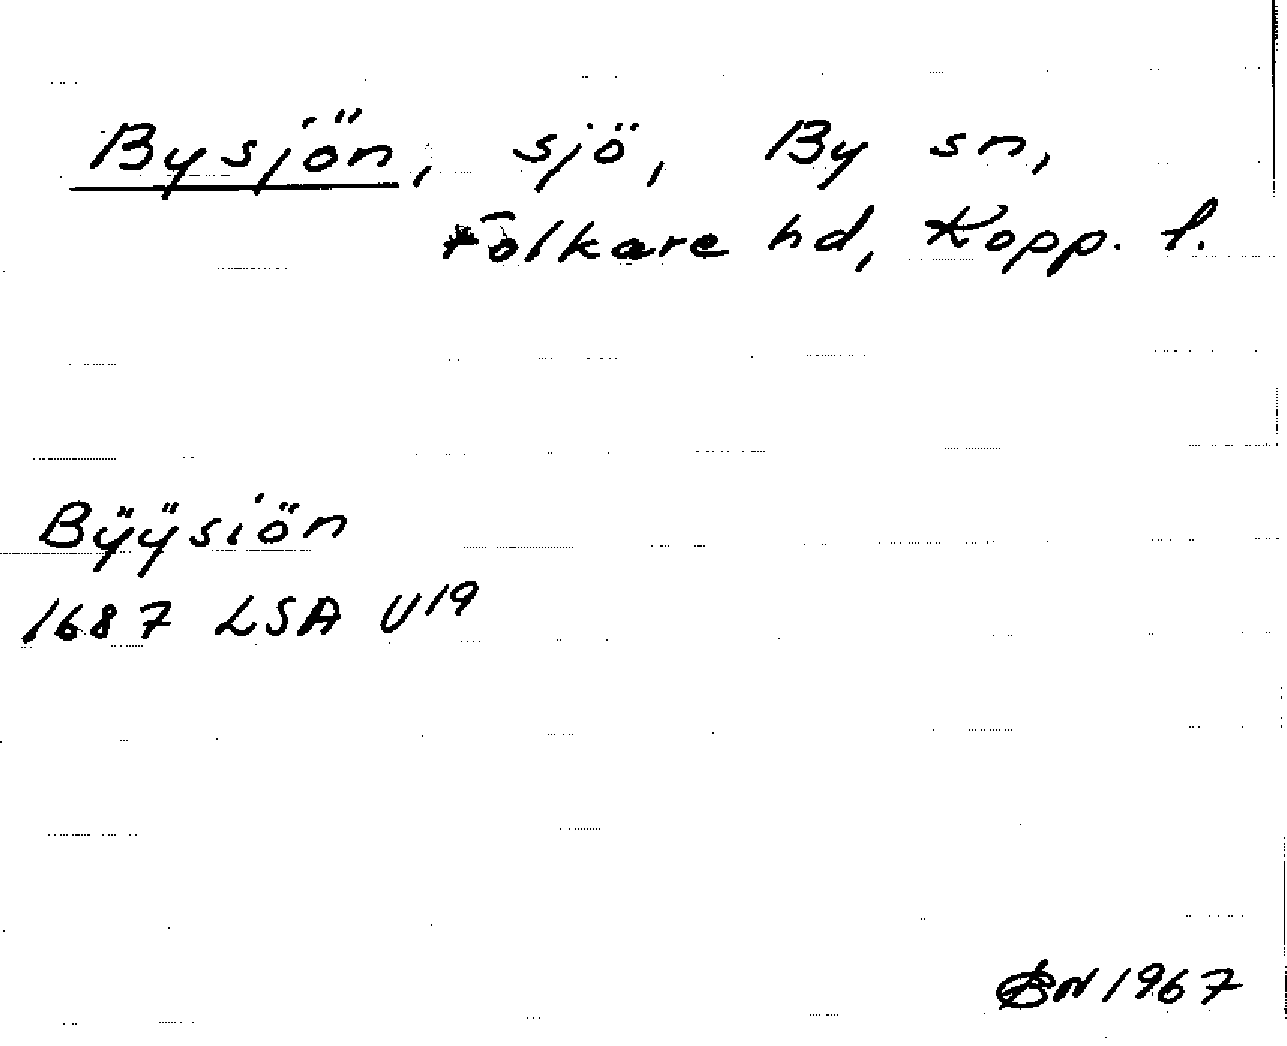 Bysjön, sjö, By sn,
Folkare hd, Kopp. l.
Bÿÿsiön
1687 LSA U19
1967